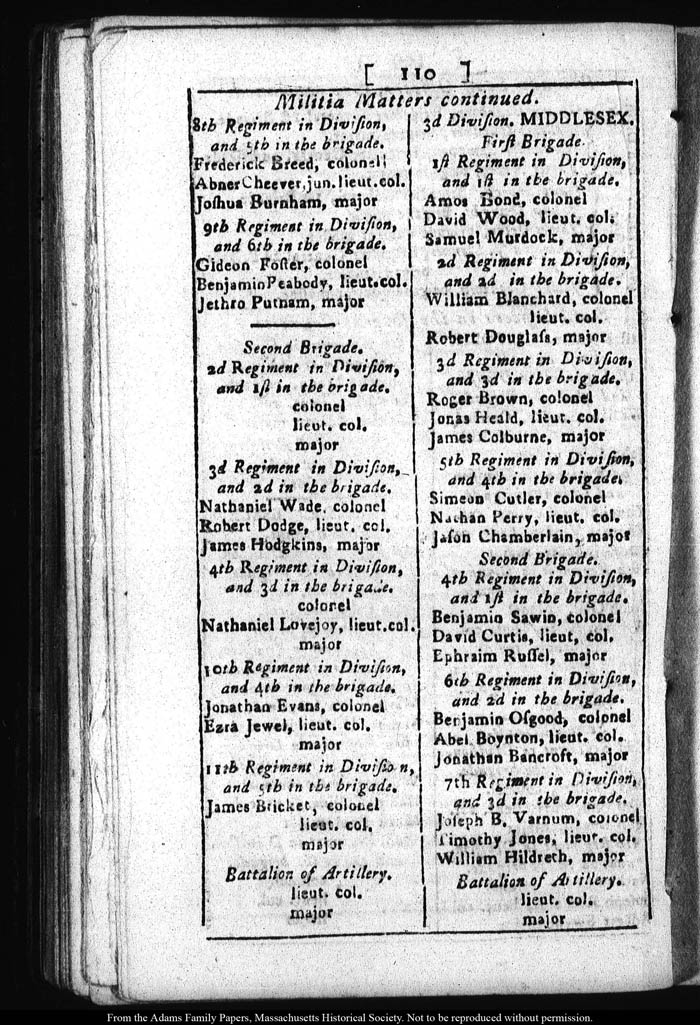 [ 110 ]
Militia Matters continued.
8th Regiment in Diviſion,
and 5th in the brigade.
Frederick Breed, colonel
Abner Cheever, jun. lieut. col.
Joſhua Burnham, major
9th Regiment in Diviſion,
and 6th in the brigade.
Gideon Foſter, colonel
Benjamin Peabody, lieut. col.
Jethro Putnam, major
Second Brigade.
2d Regiment in Diviſion,
and 1ſt in the brigade.
colonel
lieut. col.
major
3d Regiment in Diviſion,
and 2d in the brigade.
Nathaniel Wade, colonel
Robert Dodge, lieut. col.
James Hodgkins, major
4th Regiment in Diviſion,
and 3d in the brigade.
colonel
Nathaniel Lovejoy, lieut. col.
major
10th Regiment in Diviſion,
and 4th in the brigade.
Jonathan Evans, colonel
Ezra Jewel, lieut. col.
major
11th Regiment in Diviſion,
and 5th in the brigade.
James Bricket, colonel
lieut. col.
major
Battalion of Artillery.
lieut. col.
major
3d Diviſion. MIDDLESEX.
Firſt Brigade.
1ſt Regiment in Diviſion,
and 1ſt in the brigade.
Amos Bond, colonel
David Wood, lieut. col.
Samuel Murdock, major
2d Regiment in Diviſion,
and 2d in the brigade.
William Blanchard, colonel
lieut. col.
Robert Douglaſs, major
3d Regiment in Diviſion,
and 3d in the brigade.
Roger Brown, colonel
Jonas Heald, lieut. col.
James Colburne, major
5th Regiment in Diviſion,
and 4th in the brigade.
Simeon Cutler, colonel
Nathan Perry, lieut. col.
Jaſon Chamberlain, major
Second Brigade.
4th Regiment in Diviſion,
and 1ſt in the brigade.
Benjamin Sawin, colonel
David Curtis, lieut, col.
Ephraim Ruſſel, major
6th Regiment in Diviſion,
and 2d in the brigade.
Benjamin Oſgood, colonel
Abel Boynton, lieut. col.
Jonathan Bancroft, major
7th Regiment in Diviſion,
and 3d in the brigade.
Joſeph B. Varnum, colonel
Timothy Jones, lieut. col.
William Hildreth, major
Battalion of Artillery.
lieut. col.
major
From the Adams Family Papers, Massachusetts Historical Society. Not to be reproduced without permission.